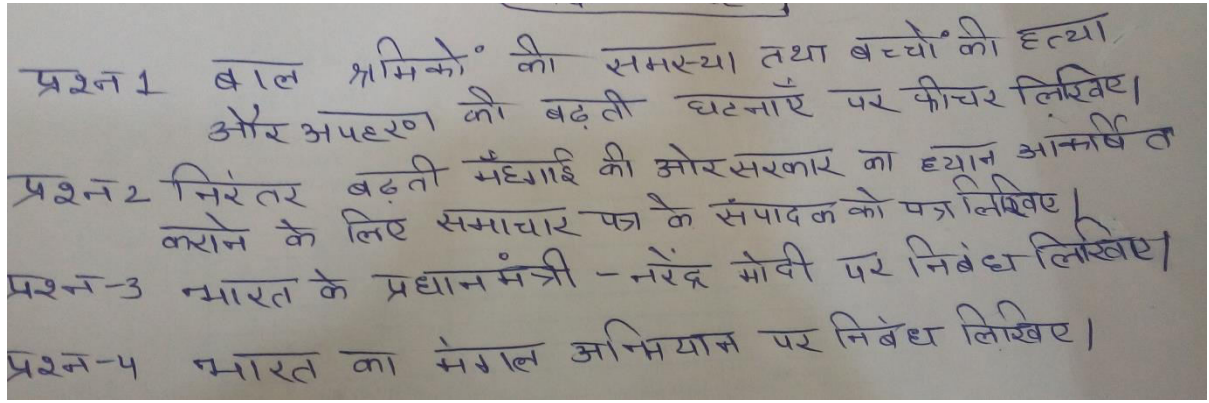 प्रश्न 1 बाल श्रमिकों की समस्या तथा बच्चों की हत्या
और अपहरण की बढ़ती घटनाएँ पर फीचर लिखिए।
प्रश्न 2 निरंतर बढ़ती मँहगाई की ओर सरकार का ध्यान आकर्षित
कराने के लिए समाचार पत्र के संपादक को पत्र लिखिए।
प्रश्न-3 भारत के प्रधानमंत्री - नरेंद्र मोदी पर निबंध लिखिए।
प्रश्न-4 भारत का मंगल अभियान पर निबंध लिखिए।